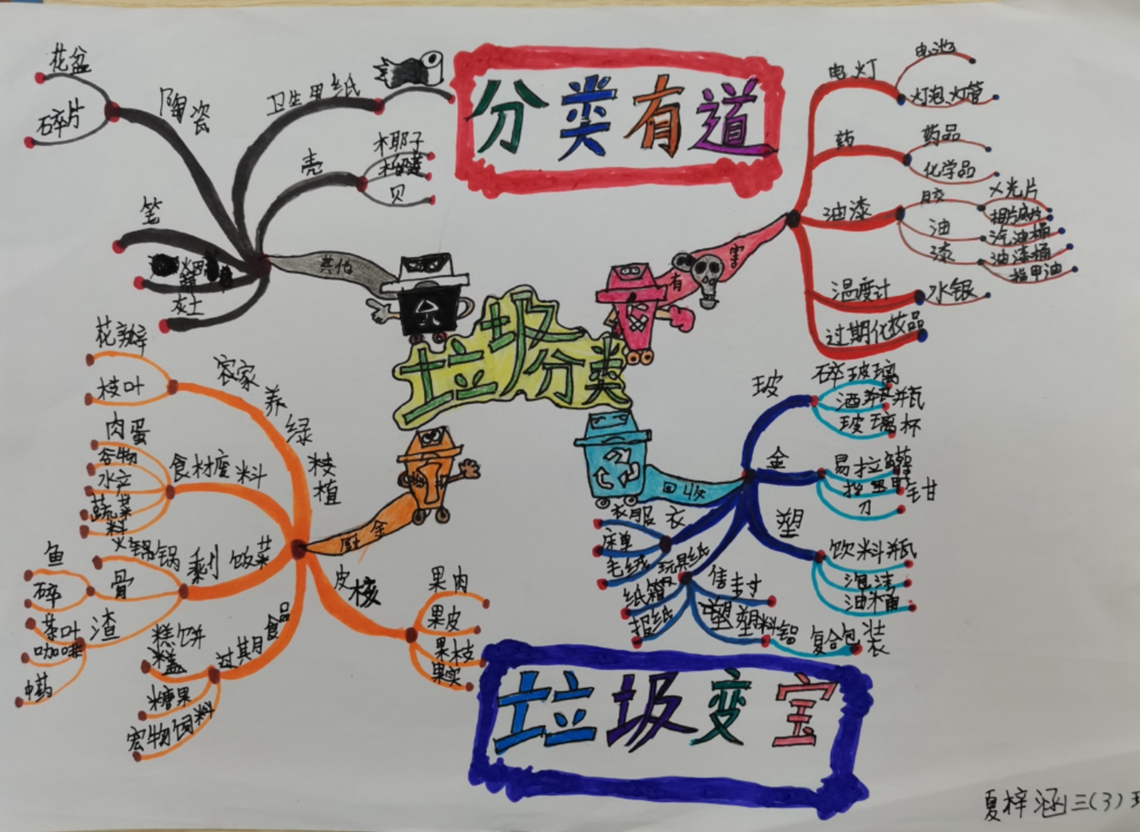 分类有道
垃圾分类
垃圾变宝
其他
陶瓷
花盆
碎片
卫生用纸
壳
椰子
榴莲
贝
笔
灰土
有害
电灯
电池
灯泡、灯管
药
药品
化学品
油漆
胶
X光片
相片底片
油
汽油桶
漆
油漆桶
指甲油
温度计
水银
过期化妆品
回收
玻
碎玻璃
酒瓶
玻璃杯
金
易拉罐
刀
塑
饮料瓶
泡沫
油桶
衣
衣服
床单
毛绒玩具
纸
纸箱
报纸
信封
塑
塑料
铝
复合包装
厨余
家养绿植
花瓣
枝叶
食材废料
肉蛋
谷物
水产
蔬菜
料
剩饭菜
火锅锅
骨
鱼
碎
渣
茶叶
咖啡
中药
过期食品
糕饼
糖果
宠物饲料
皮核
果肉
果皮
果枝
果实
夏梓涵三(3)班